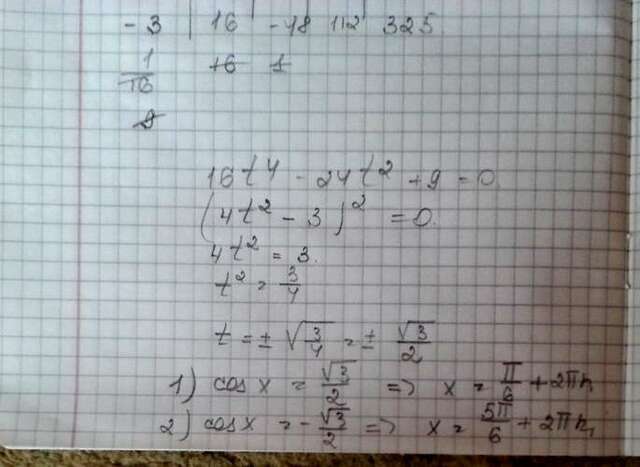 -3 | 16 | -48 112 325
1/16 +6 1
9
16t⁴ - 24t² + 9 = 0
(4t² - 3)² = 0
4t² = 3.
t² = 3/4
t = ± √(3/4) = ± √3/2
1) cos x = √3/2 => x = π/6 + 2πn,
2) cos x = -√3/2 => x = 5π/6 + 2πn,